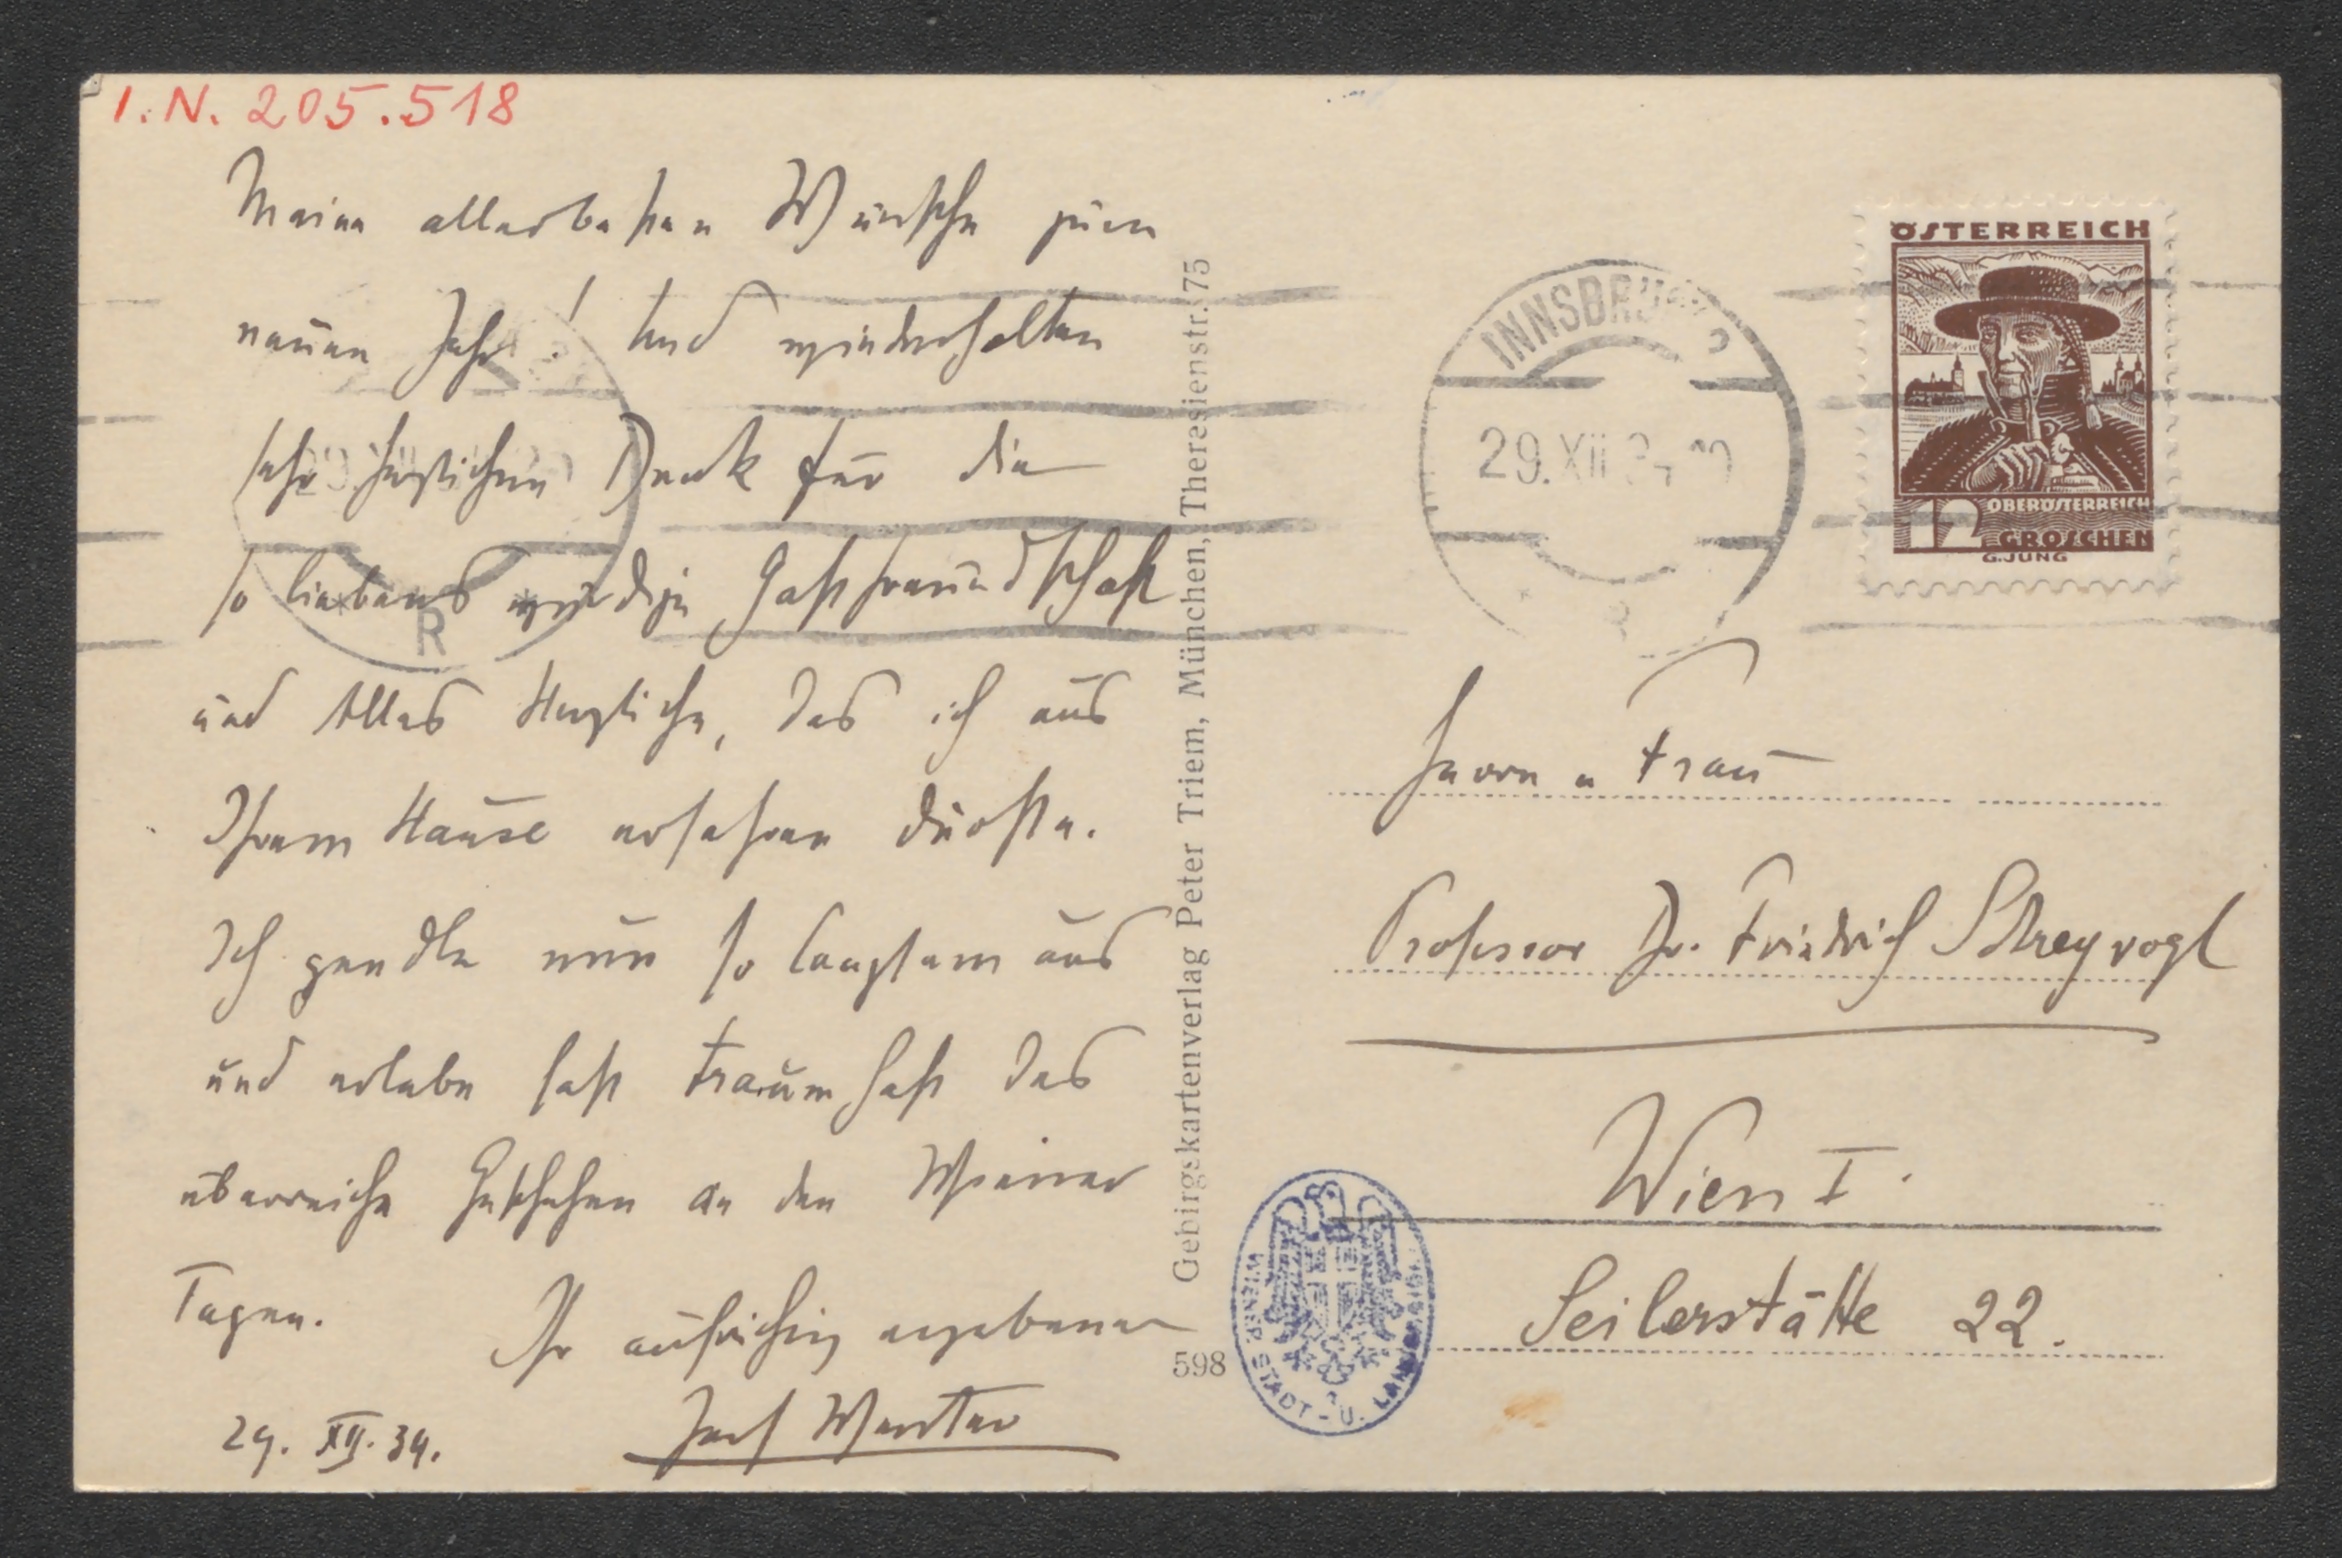 I.N. 205.518
Meine allerbesten Wünsche zum
neuen Jahr! Und wiederholten
sehr herzlichen Dank für die
so liebenswürdige Gastfreundschaft
und Alles Herzliche, das ich aus
Ihrem Hause erfahren durfte.
Ich pendle nun so langsam aus
und erlebe fast traumhaft das
überreiche Geschehen an den Wiener
Tagen.
Ihr aufrichtig ergebener
Josef Wenter
29. XII. 34.
Gebirgskartenverlag Peter Triem, München, Theresienstr. 75
598
INNSBRUCK 2
29.XII
R
ÖSTERREICH
OBERÖSTERREICH
12 GROSCHEN
G.JUNG
Herrn u Frau
Professor Dr. Friedrich Schreyvogl
Wien I.
Seilerstätte 22.
WIENER STADT- U. LANDES